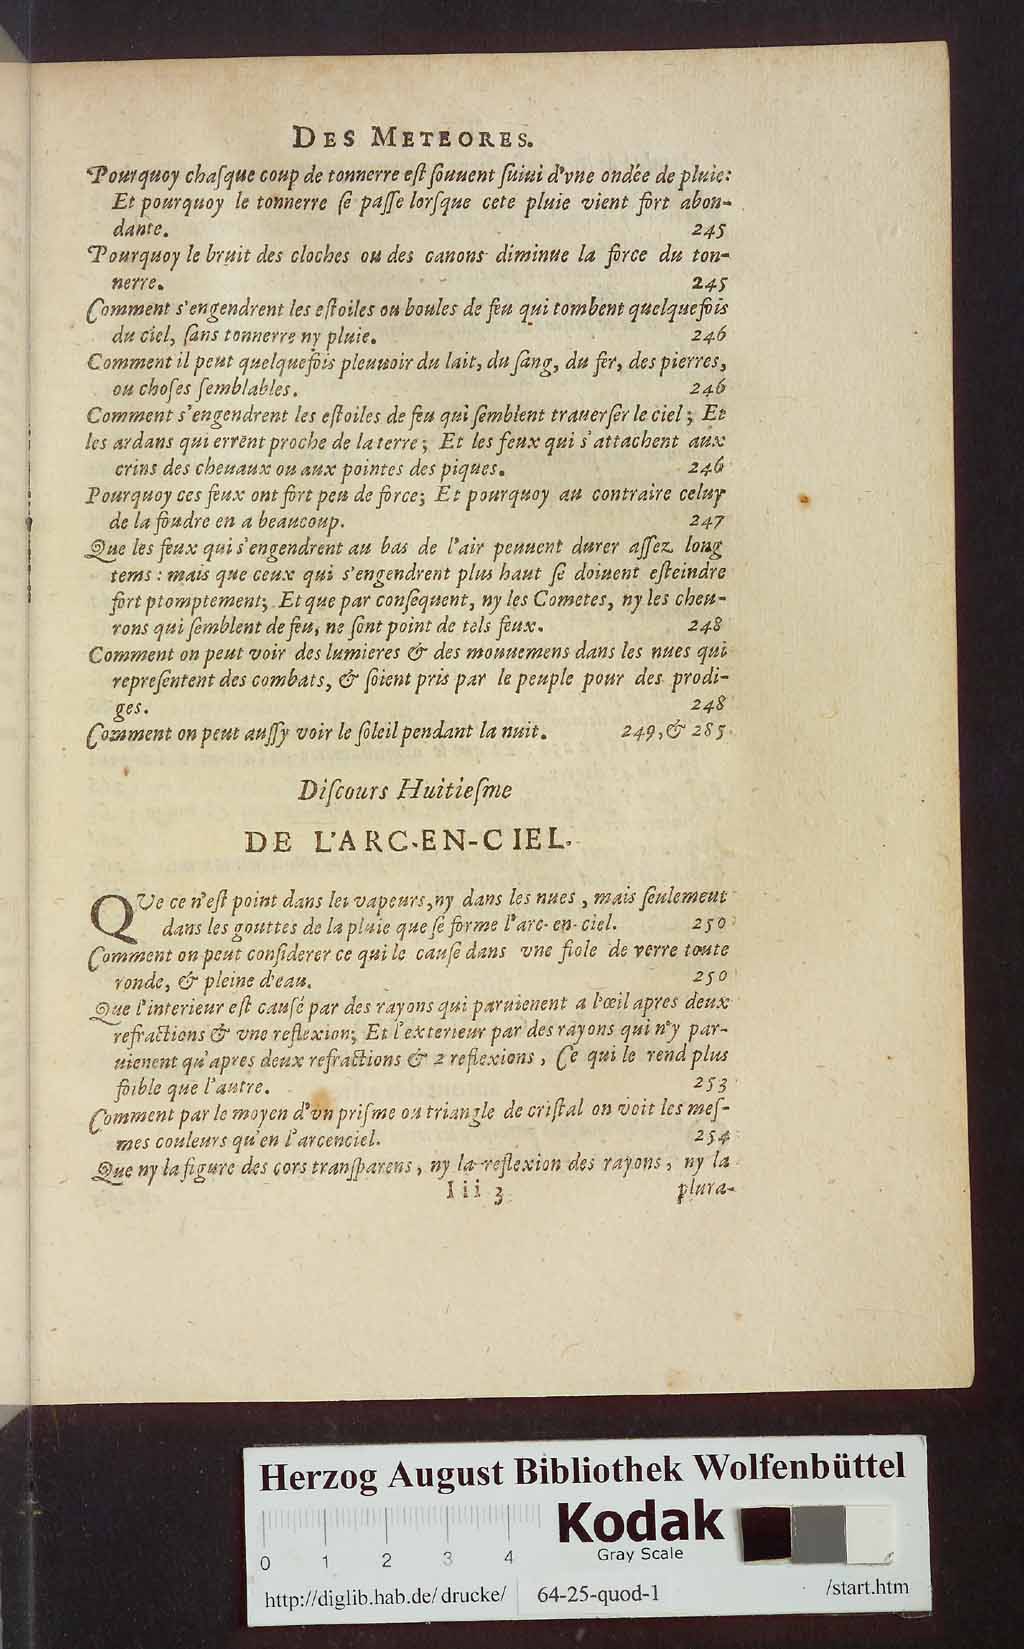 DES METEORES.
Pourquoy chaſque coup de tonnerre eſt ſouuent ſuiui d'vne ondée de pluie:
Et pourquoy le tonnerre ſe paſſe lorſque cete pluie vient fort abon-
dante. 245
Pourquoy le bruit des cloches ou des canons diminue la force du ton-
nerre. 245
Comment s'engendrent les eſtoiles ou boules de feu qui tombent quelquefois
du ciel, ſans tonnerre ny pluie. 246
Comment il peut quelquefois pleuuoir du lait, du ſang, du fer, des pierres,
ou choſes ſemblables. 246
Comment s'engendrent les eſtoiles de feu qui ſemblent trauerſer le ciel; Et
les ardans qui errent proche de la terre; Et les feux qui s'attachent aux
crins des cheuaux ou aux pointes des piques. 246
Pourquoy ces feux ont fort peu de force; Et pourquoy au contraire celuy
de la foudre en a beaucoup. 247
Que les feux qui s'engendrent au bas de l'air peuuent durer aſſez long
tems: mais que ceux qui s'engendrent plus haut ſe doiuent eſteindre
fort ptomptement; Et que par conſequent, ny les Cometes, ny les cheu-
rons qui ſemblent de feu, ne ſont point de tels feux. 248
Comment on peut voir des lumieres & des mouuemens dans les nues qui
repreſentent des combats, & ſoient pris par le peuple pour des prodi-
ges. 248
Comment on peut auſſy voir le ſoleil pendant la nuit. 249, & 285.
Diſcours Huitieſme
DE L'ARC-EN-CIEL.
QVe ce n'eſt point dans les vapeurs, ny dans les nues, mais ſeulement
dans les gouttes de la pluie que ſe forme l'arc-en-ciel. 250
Comment on peut conſiderer ce qui le cauſe dans vne fiole de verre toute
ronde, & pleine d'eau. 250
Que l'interieur eſt cauſé par des rayons qui paruienent a l'œil apres deux
refractions & vne reflexion; Et l'exterieur par des rayons qui n'y par-
uienent qu'apres deux refractions & 2 reflexions, Ce qui le rend plus
foible que l'autre. 253
Comment par le moyen d'vn priſme ou triangle de criſtal on voit les meſ-
mes couleurs qu'en l'arcenciel. 254
Que ny la figure des cors tranſparens, ny la reflexion des rayons, ny la
Iii 3 plura-
Herzog August Bibliothek Wolfenbüttel
0 1 2 3 4
Kodak
Gray Scale
http://diglib.hab.de/drucke/ 64-25-quod-1 /start.htm